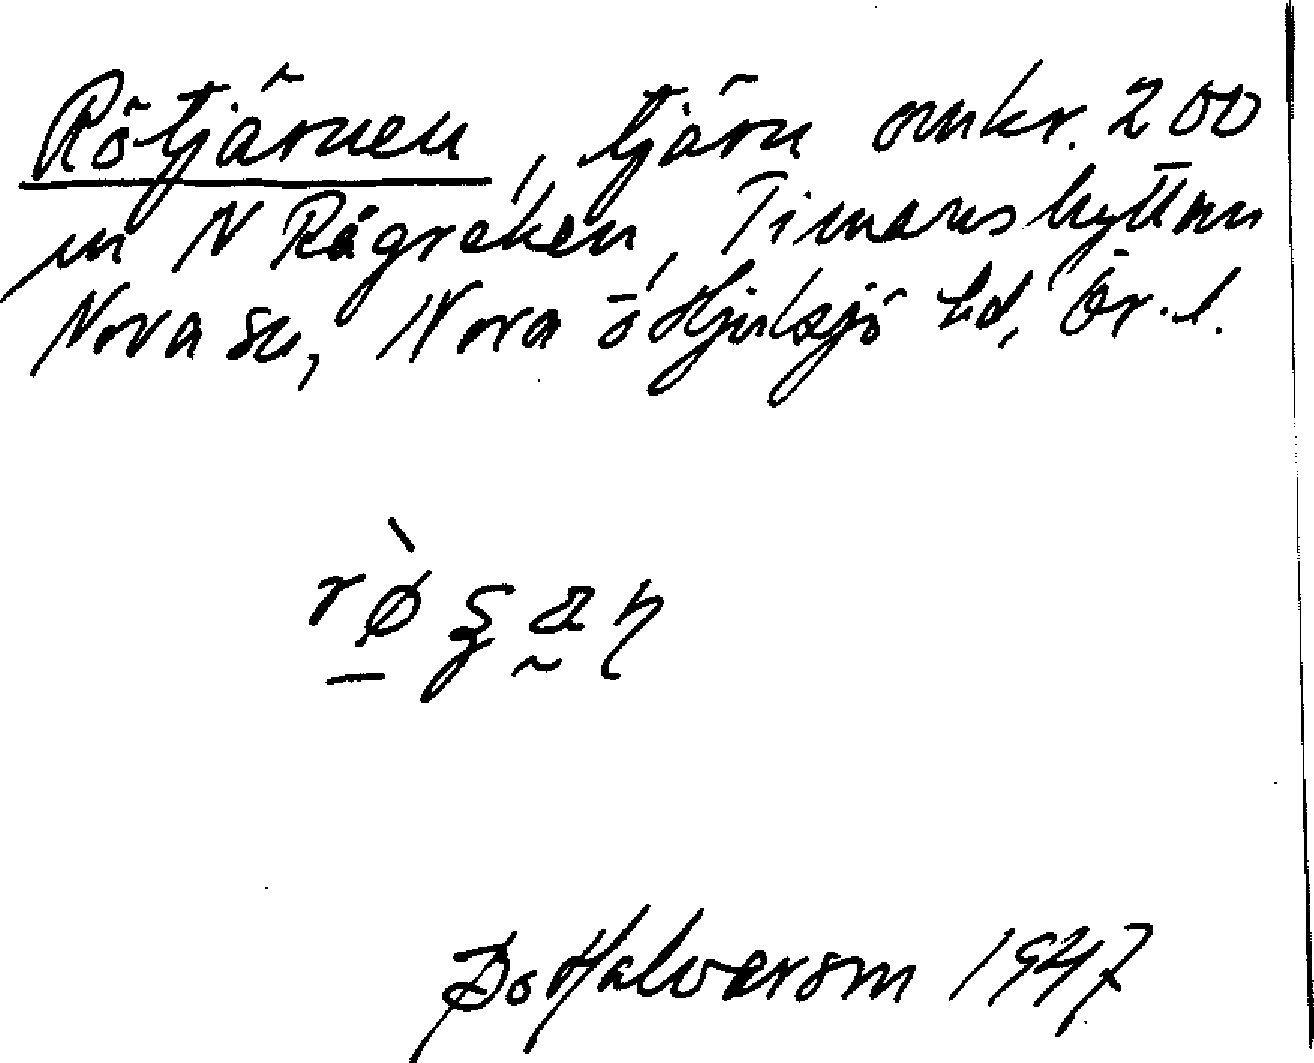 Rötjärnen, tjärn omkr. 200
m N Rågreken, Timanshyttan
Nora sn, Nora o Hjulsjö hd, Ör. l.
Bo Halvarson 1947